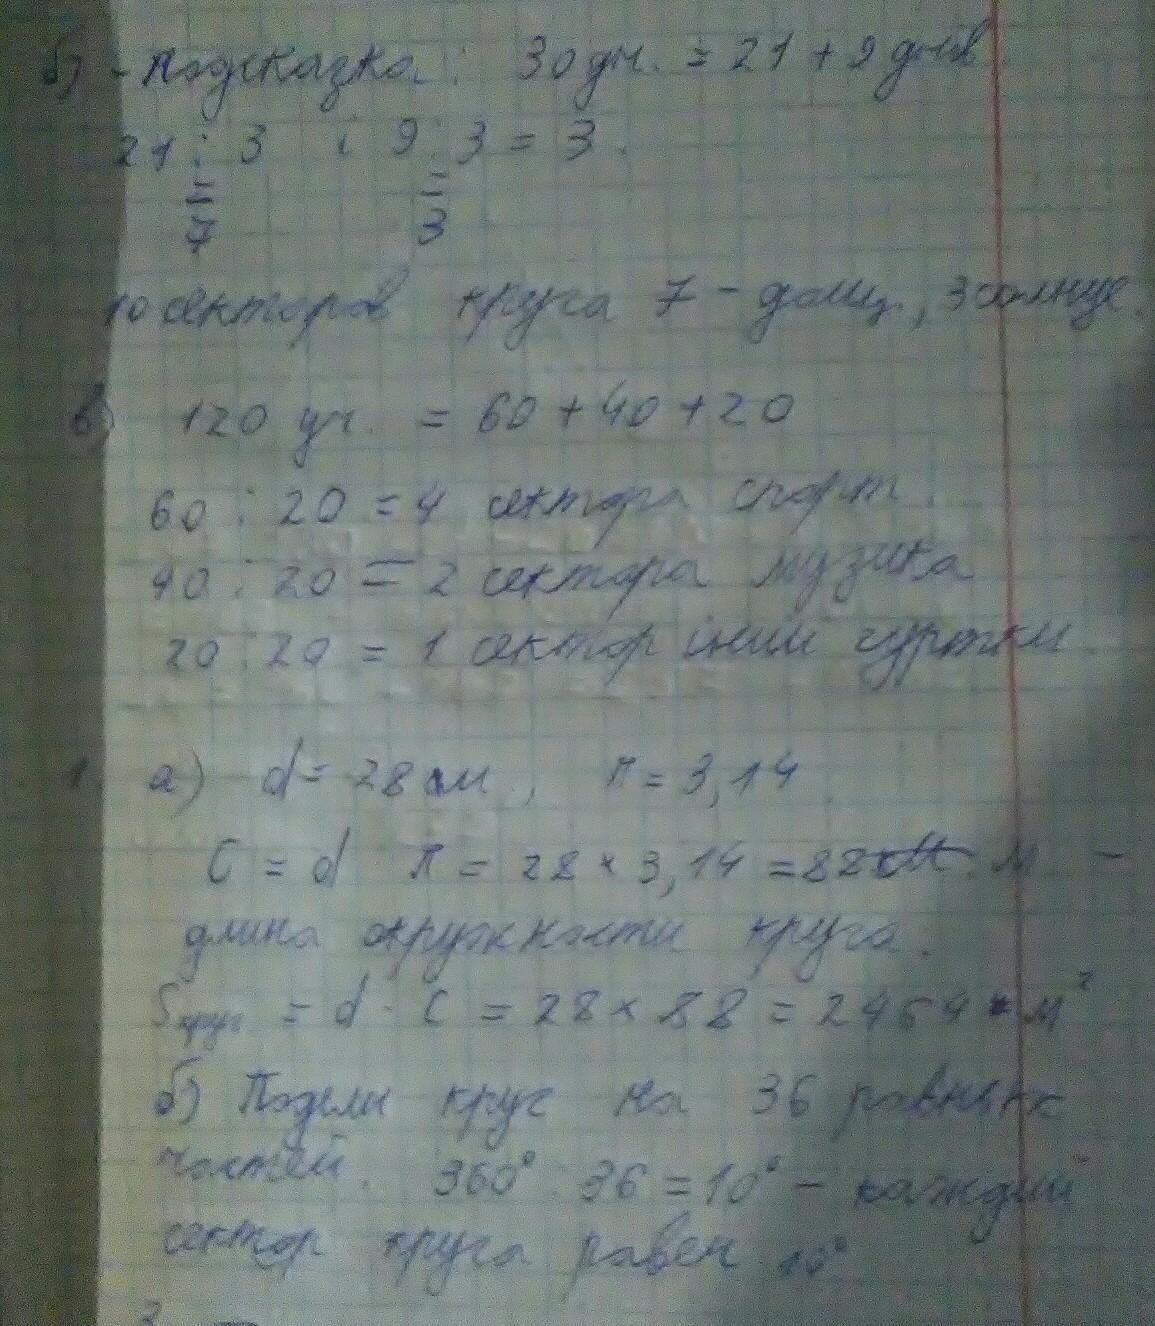 б) - Подсказка: 30 дн. = 21 + 9 днів
21 : 3 і 9 : 3 = 3.
= =
7 3
10 секторов круга 7 - дощ, 3 солнце.
в) 120 уч. = 60 + 40 + 20
60 : 20 = 4 сектора спорт.
40 : 20 = 2 сектора музика
20 : 20 = 1 сектор інши гуртки
1 а) d = 28 м, π = 3,14
C = d π = 28 × 3,14 = 88 м -
длина окружности круга.
S круг = d · C = 28 × 88 = 2464 м²
б) Подели круг на 36 равных
частей. 360° : 36 = 10° - каждий
сектор круга равен 10°